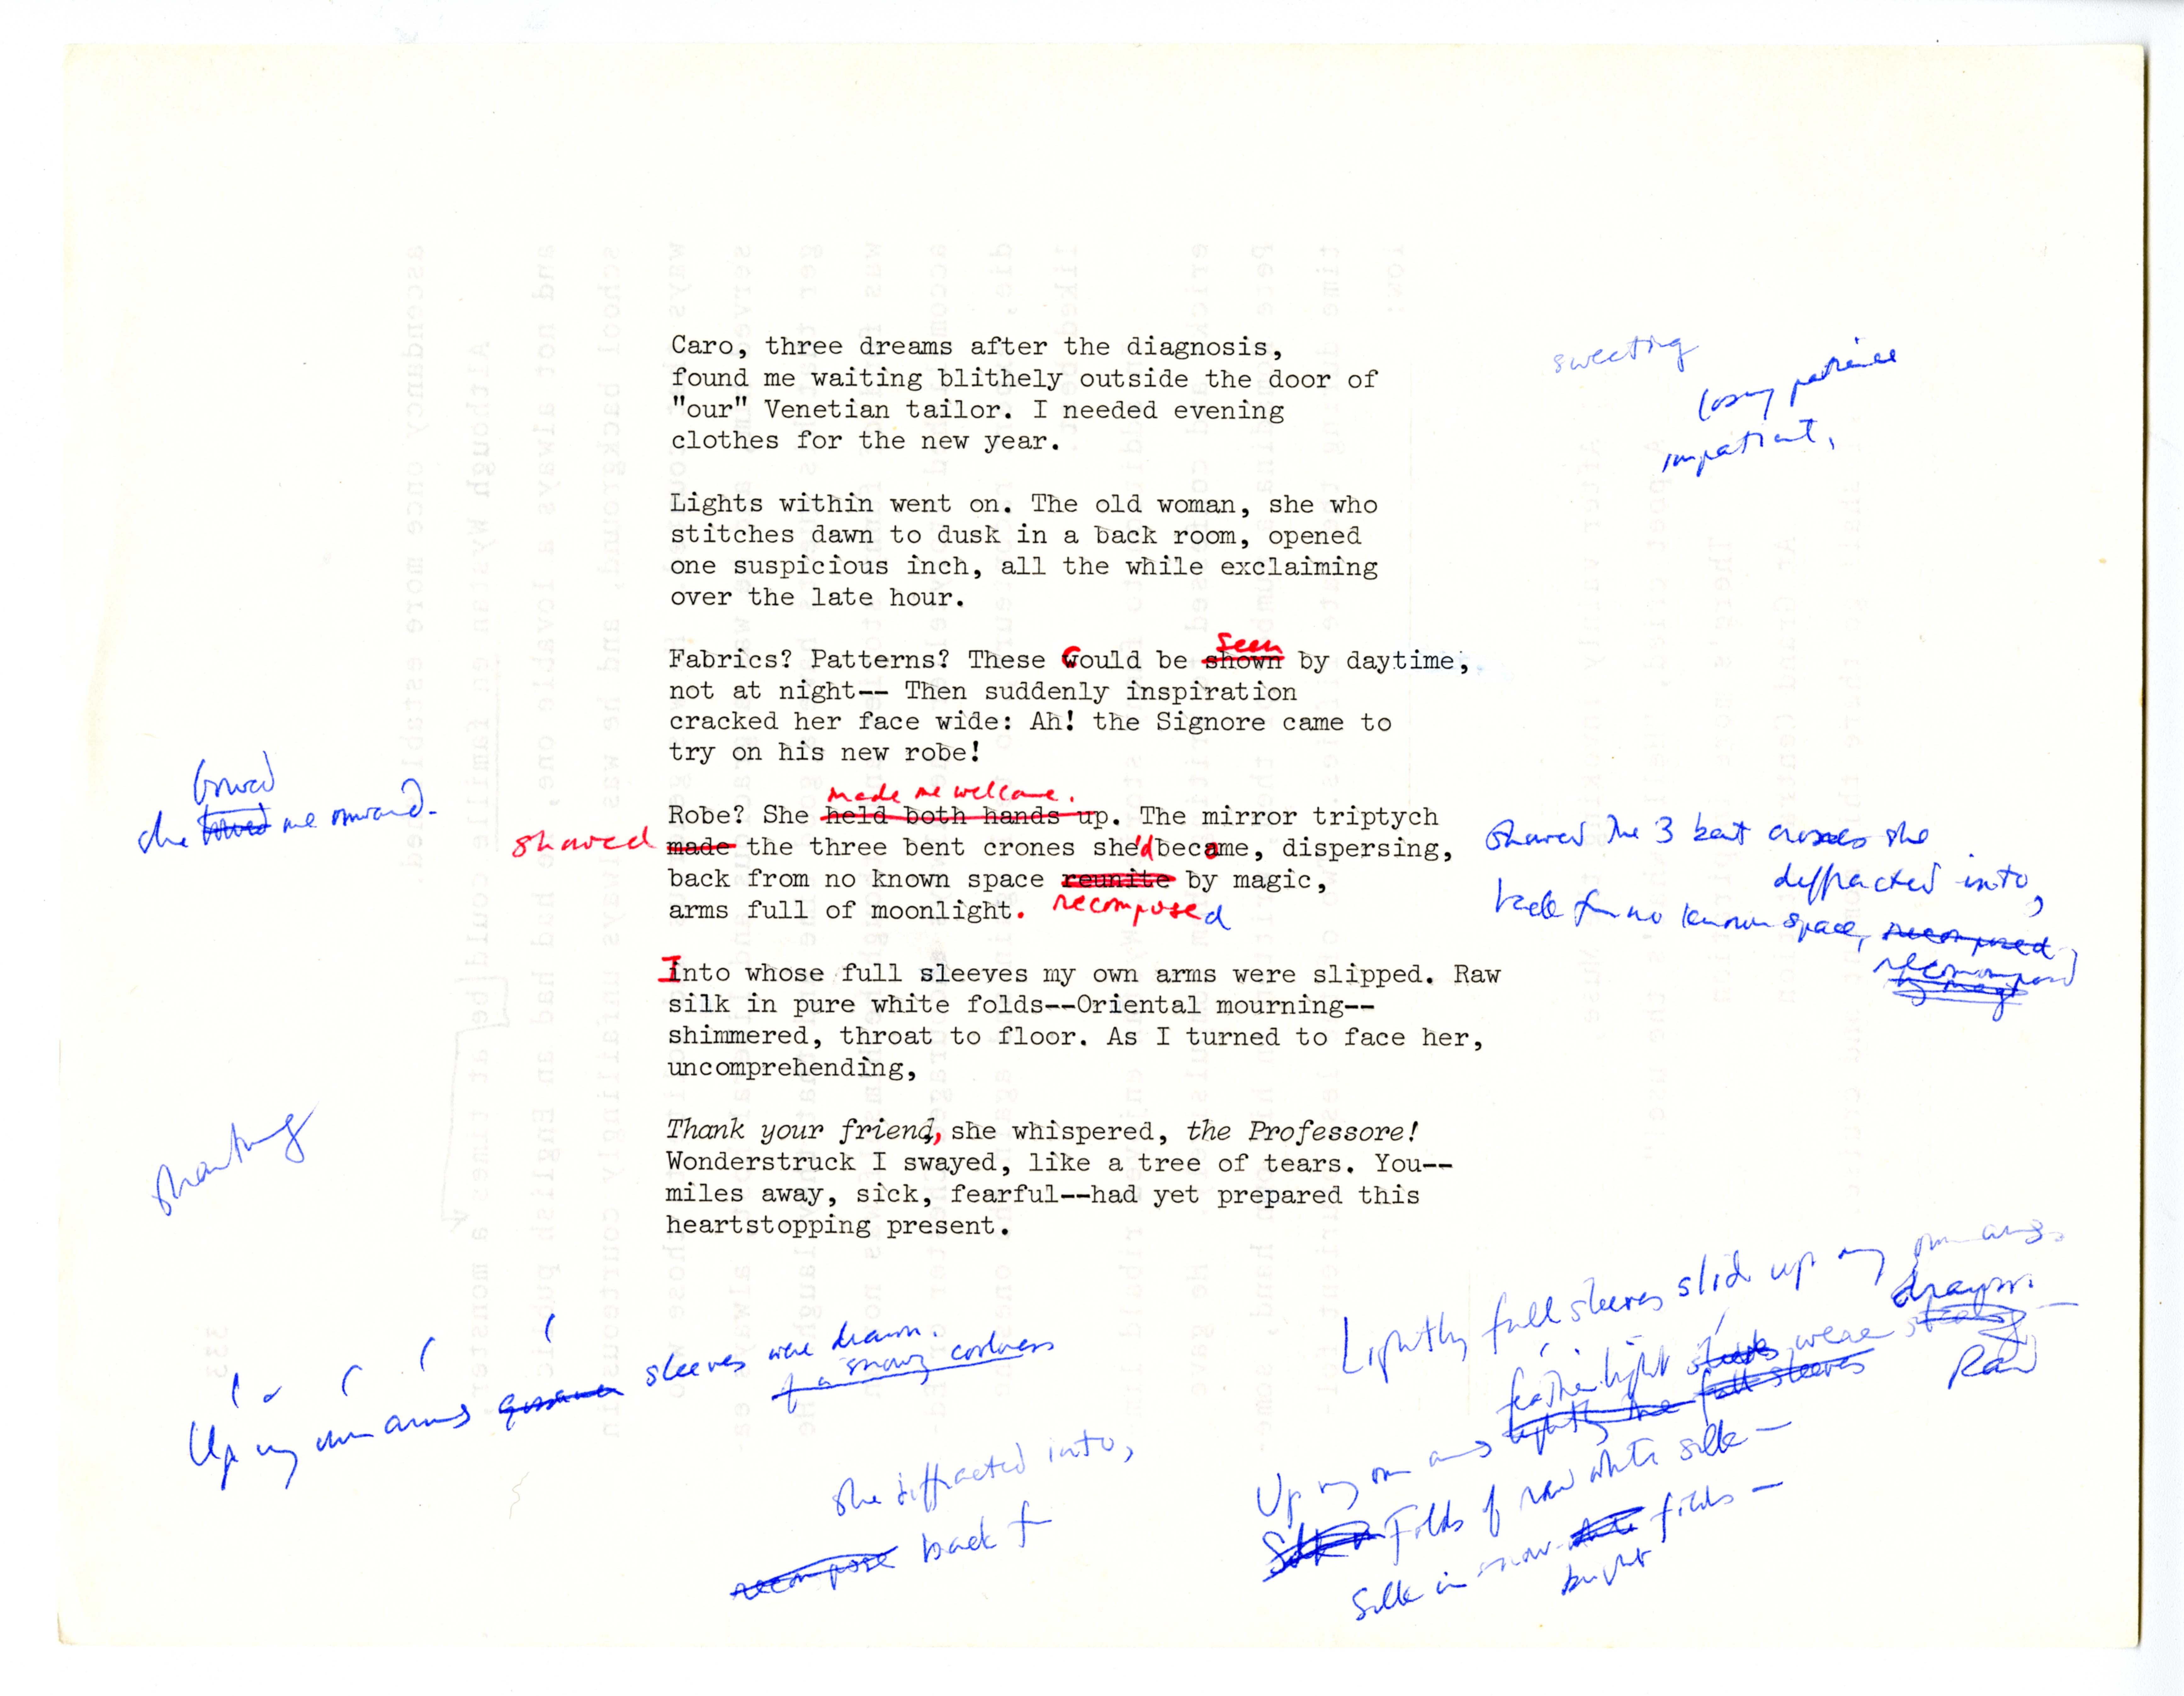 Caro, three dreams after the diagnosis,
found me waiting blithely outside the door of
"our" Venetian tailor. I needed evening
clothes for the new year.
sweeting
losing patience
impatient,
Lights within went on. The old woman, she who
stitches dawn to dusk in a back room, opened
one suspicious inch, all the while exclaiming
over the late hour.
seen
Fabrics? Patterns? These Could be shown by daytime,
not at night-- Then suddenly inspiration
cracked her face wide: Ah! the Signore came to
try on his new robe!
bowed
she towed me onward.
made me welcome.
Robe? She held both hands up. The mirror triptych
shaved made the three bent crones she'd become, dispersing,
back from no known space reunite by magic,
arms full of moonlight. recomposed
shaved the 3 bent crones she
diffracted into,
back fm no known space, recomposed
recomposed
by magic
Into whose full sleeves my own arms were slipped. Raw
silk in pure white folds--Oriental mourning--
shimmered, throat to floor. As I turned to face her,
uncomprehending,
Thank your friend, she whispered, the Professore!
Wonderstruck I swayed, like a tree of tears. You--
miles away, sick, fearful--had yet prepared this
heartstopping present.
Up my own arms sleeves were drawn.
of a snowy coolness
she diffracted into,
recompose back f
Lightly full sleeves slid up my own arms.
drawn.
feather light were
lightly the full sleeves Raw
Up my own arms
Folds of raw white silk —
Silk in snow- folds —
bright